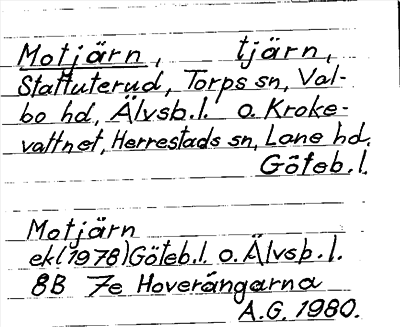 Motjärn, tjärn,
Stattuterud, Torps sn, Val-
bo hd, Älvsb.l. o. Kroke-
vattnet, Herrestads sn, Lane hd.
Göteb.l.
Motjärn
ek(1978)Göteb.l. o. Älvsb.l.
8B 7e Hoverängarna
A.G. 1980.